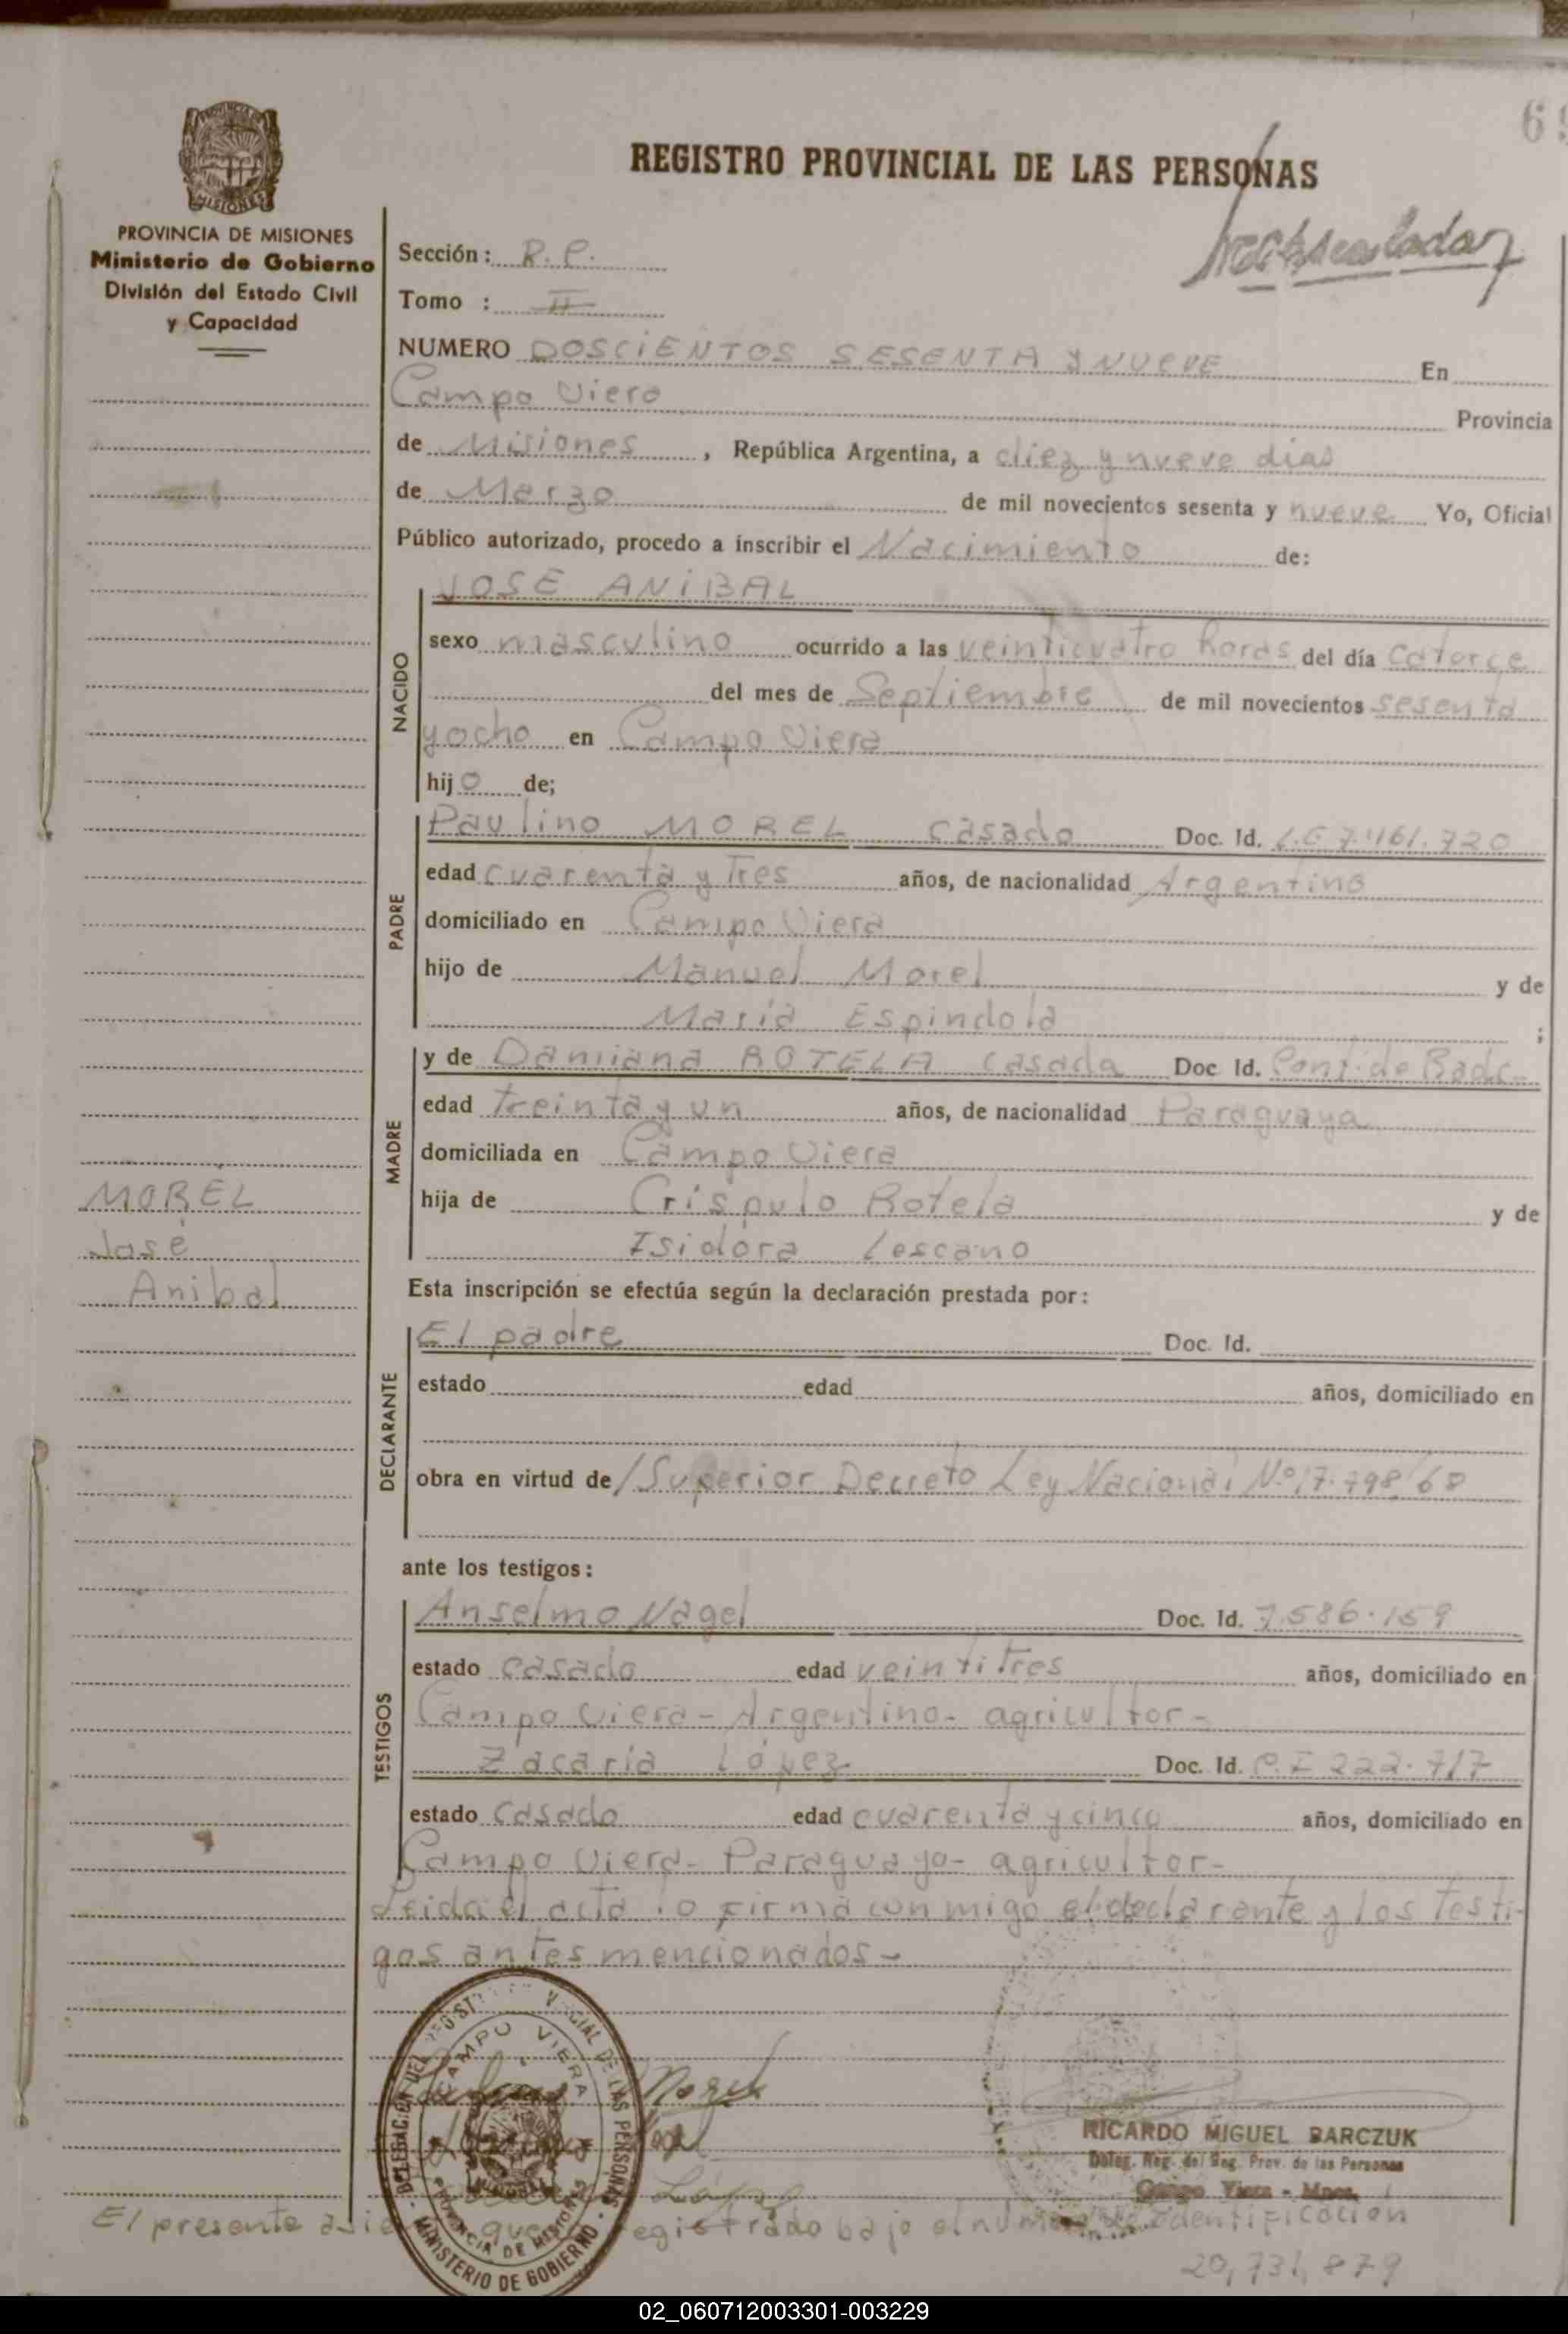 69
REGISTRO PROVINCIAL DE LAS PERSONAS
MISIONES
PROVINCIA DE MISIONES
Ministerio de Gobierno
División del Estado Civil
y Capacidad
Sección: R. P.
Tomo : II
NUMERO DOSCIENTOS SESENTA y NUEVE En
Campo Viera Provincia
de Misiones, República Argentina, a diez y nueve dias
de Marzo de mil novecientos sesenta y nueve Yo, Oficial
Público autorizado, procedo a inscribir el Nacimiento de:
NACIDO
JOSE ANIBAL
sexo masculino ocurrido a las veinticuatro horas del día catorce
del mes de Septiembre de mil novecientos sesenta
y ocho en Campo Viera
hijo de;
PADRE
Paulino MOREL casado Doc. Id. L.E 7.461.720
edad cuarenta y Tres años, de nacionalidad Argentino
domiciliado en Campo Viera
hijo de Manuel Morel y de
Maria Espindola ;
MADRE
y de Damiana ROTELA casada Doc Id.
edad treinta y un años, de nacionalidad Paraguaya
domiciliada en Campo Viera
hija de Crispulo Rotela y de
Isidora Lescano
MOREL
José
Anibal
Esta inscripción se efectúa según la declaración prestada por:
DECLARANTE
El padre Doc. Id.
estado edad años, domiciliado en
obra en virtud de /Superior Decreto Ley Nacional Nº 17.798/68
ante los testigos:
TESTIGOS
Anselmo Nagel Doc. Id. 7.586.159
estado casado edad veintitres años, domiciliado en
Campo Viera - Argentino - agricultor -
Zacaria López Doc. Id. C.I 222.717
estado casado edad cuarenta y cinco años, domiciliado en
Campo Viera - Paraguayo - agricultor -
Leida el acta lo firma con migo el declarante y los testi-
gos antes mencionados -
DELEGACION DEL REGISTRO PROVINCIAL DE LAS PERSONAS
CAMPO VIERA
PROVINCIA DE MISIONES
MINISTERIO DE GOBIERNO
Morel
López
RICARDO MIGUEL BARCZUK
Deleg. Reg. del Reg. Prov. de las Personas
Campo Viera - Mnes.
El presente asiento queda registrado bajo el numero de identificación
20,731,879
02_060712003301-003229